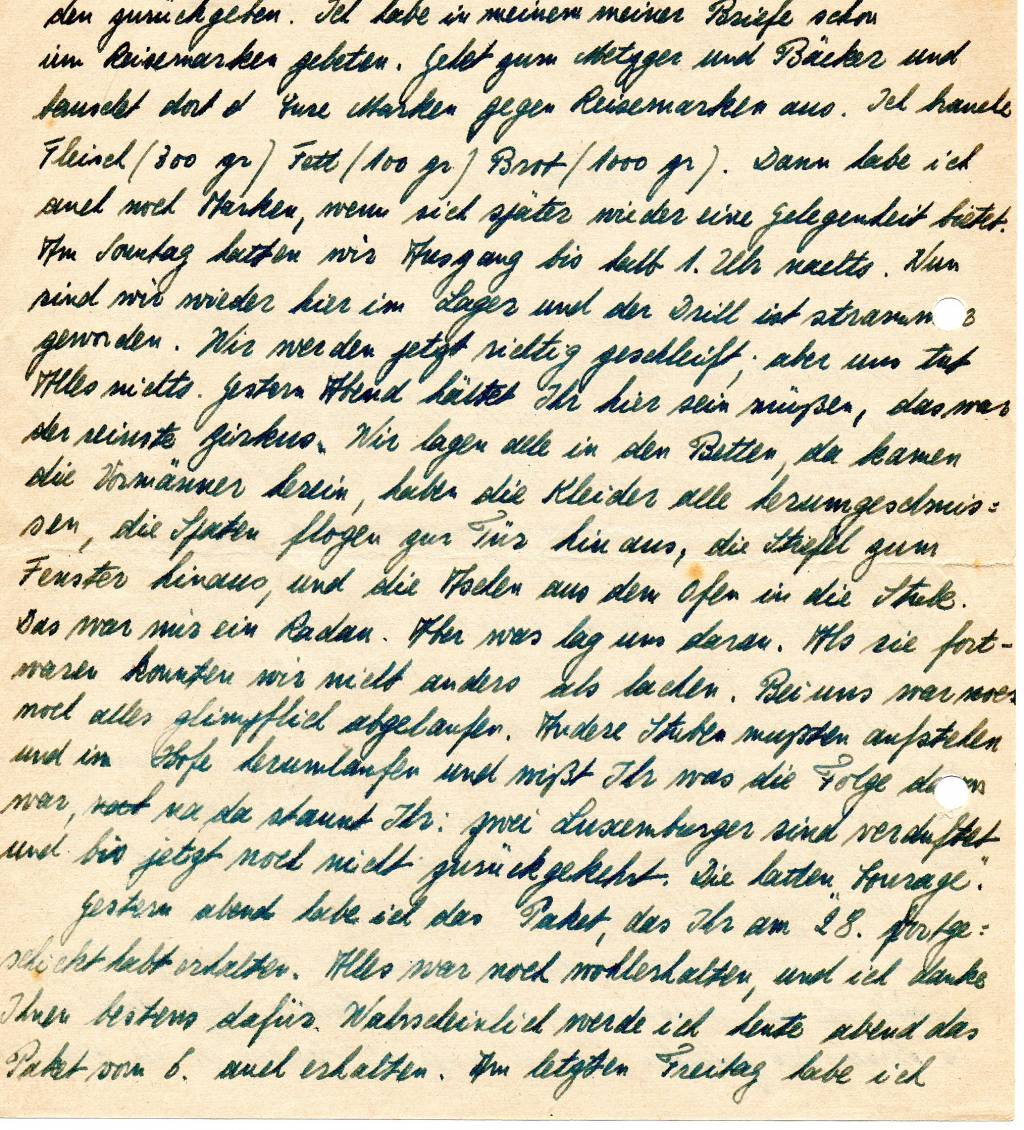 den zurückgeben. Ich habe in meinem meiner Briefe schon
um Reisemarken gebeten. Gehet zum Metzger und Bäcker und
tauschet dort d Eure Marken gegen Reisemarken aus. Ich brauche
Fleisch (300 gr) Fett (100 gr) Brot (1000 gr). Dann habe ich
auch noch Marken, wenn sich später wieder eine Gelegenheit bietet.
Am Sonntag hatten wir Ausgang bis halb 1. Uhr nachts. Nun
sind wir wieder hier im Lager und der Drill ist
geworden. Wir werden jetzt richtig geschleift, aber uns tut
Alles nichts. Gestern Abend hättet Ihr hier sein müßen, das war
der reinste Zirkus. Wir lagen alle in den Betten, da kamen
die Vormänner herein, haben die Kleider alle herumgeschmis=
sen, die Spaten flogen zur Tür hinaus, die Stiefel zum
Fenster hinaus, und die Aschen aus dem Ofen in die Stube.
Das war mir ein Radau. Aber was lag uns daran. Als sie fort-
waren konnten wir nicht anders als lachen. Bei uns war noch
noch alles glimpflich abgelaufen. Andere Stuben mußten aufstehen
und im Hofe herumlaufen und wißt Ihr was die Folge
war, na da staunt Ihr: zwei Luxemburger sind verduftet
und bis jetzt noch nicht zurückgekehrt. Die hatten „Courage".
Gestern abend habe ich das Paket, das Ihr am 28. fortge=
schickt habt erhalten. Alles war noch wohlerhalten, und ich danke
Ihnen bestens dafür. Wahrscheinlich werde ich heute abend das
Paket vom 6. auch erhalten. Am letzten Freitag habe ich